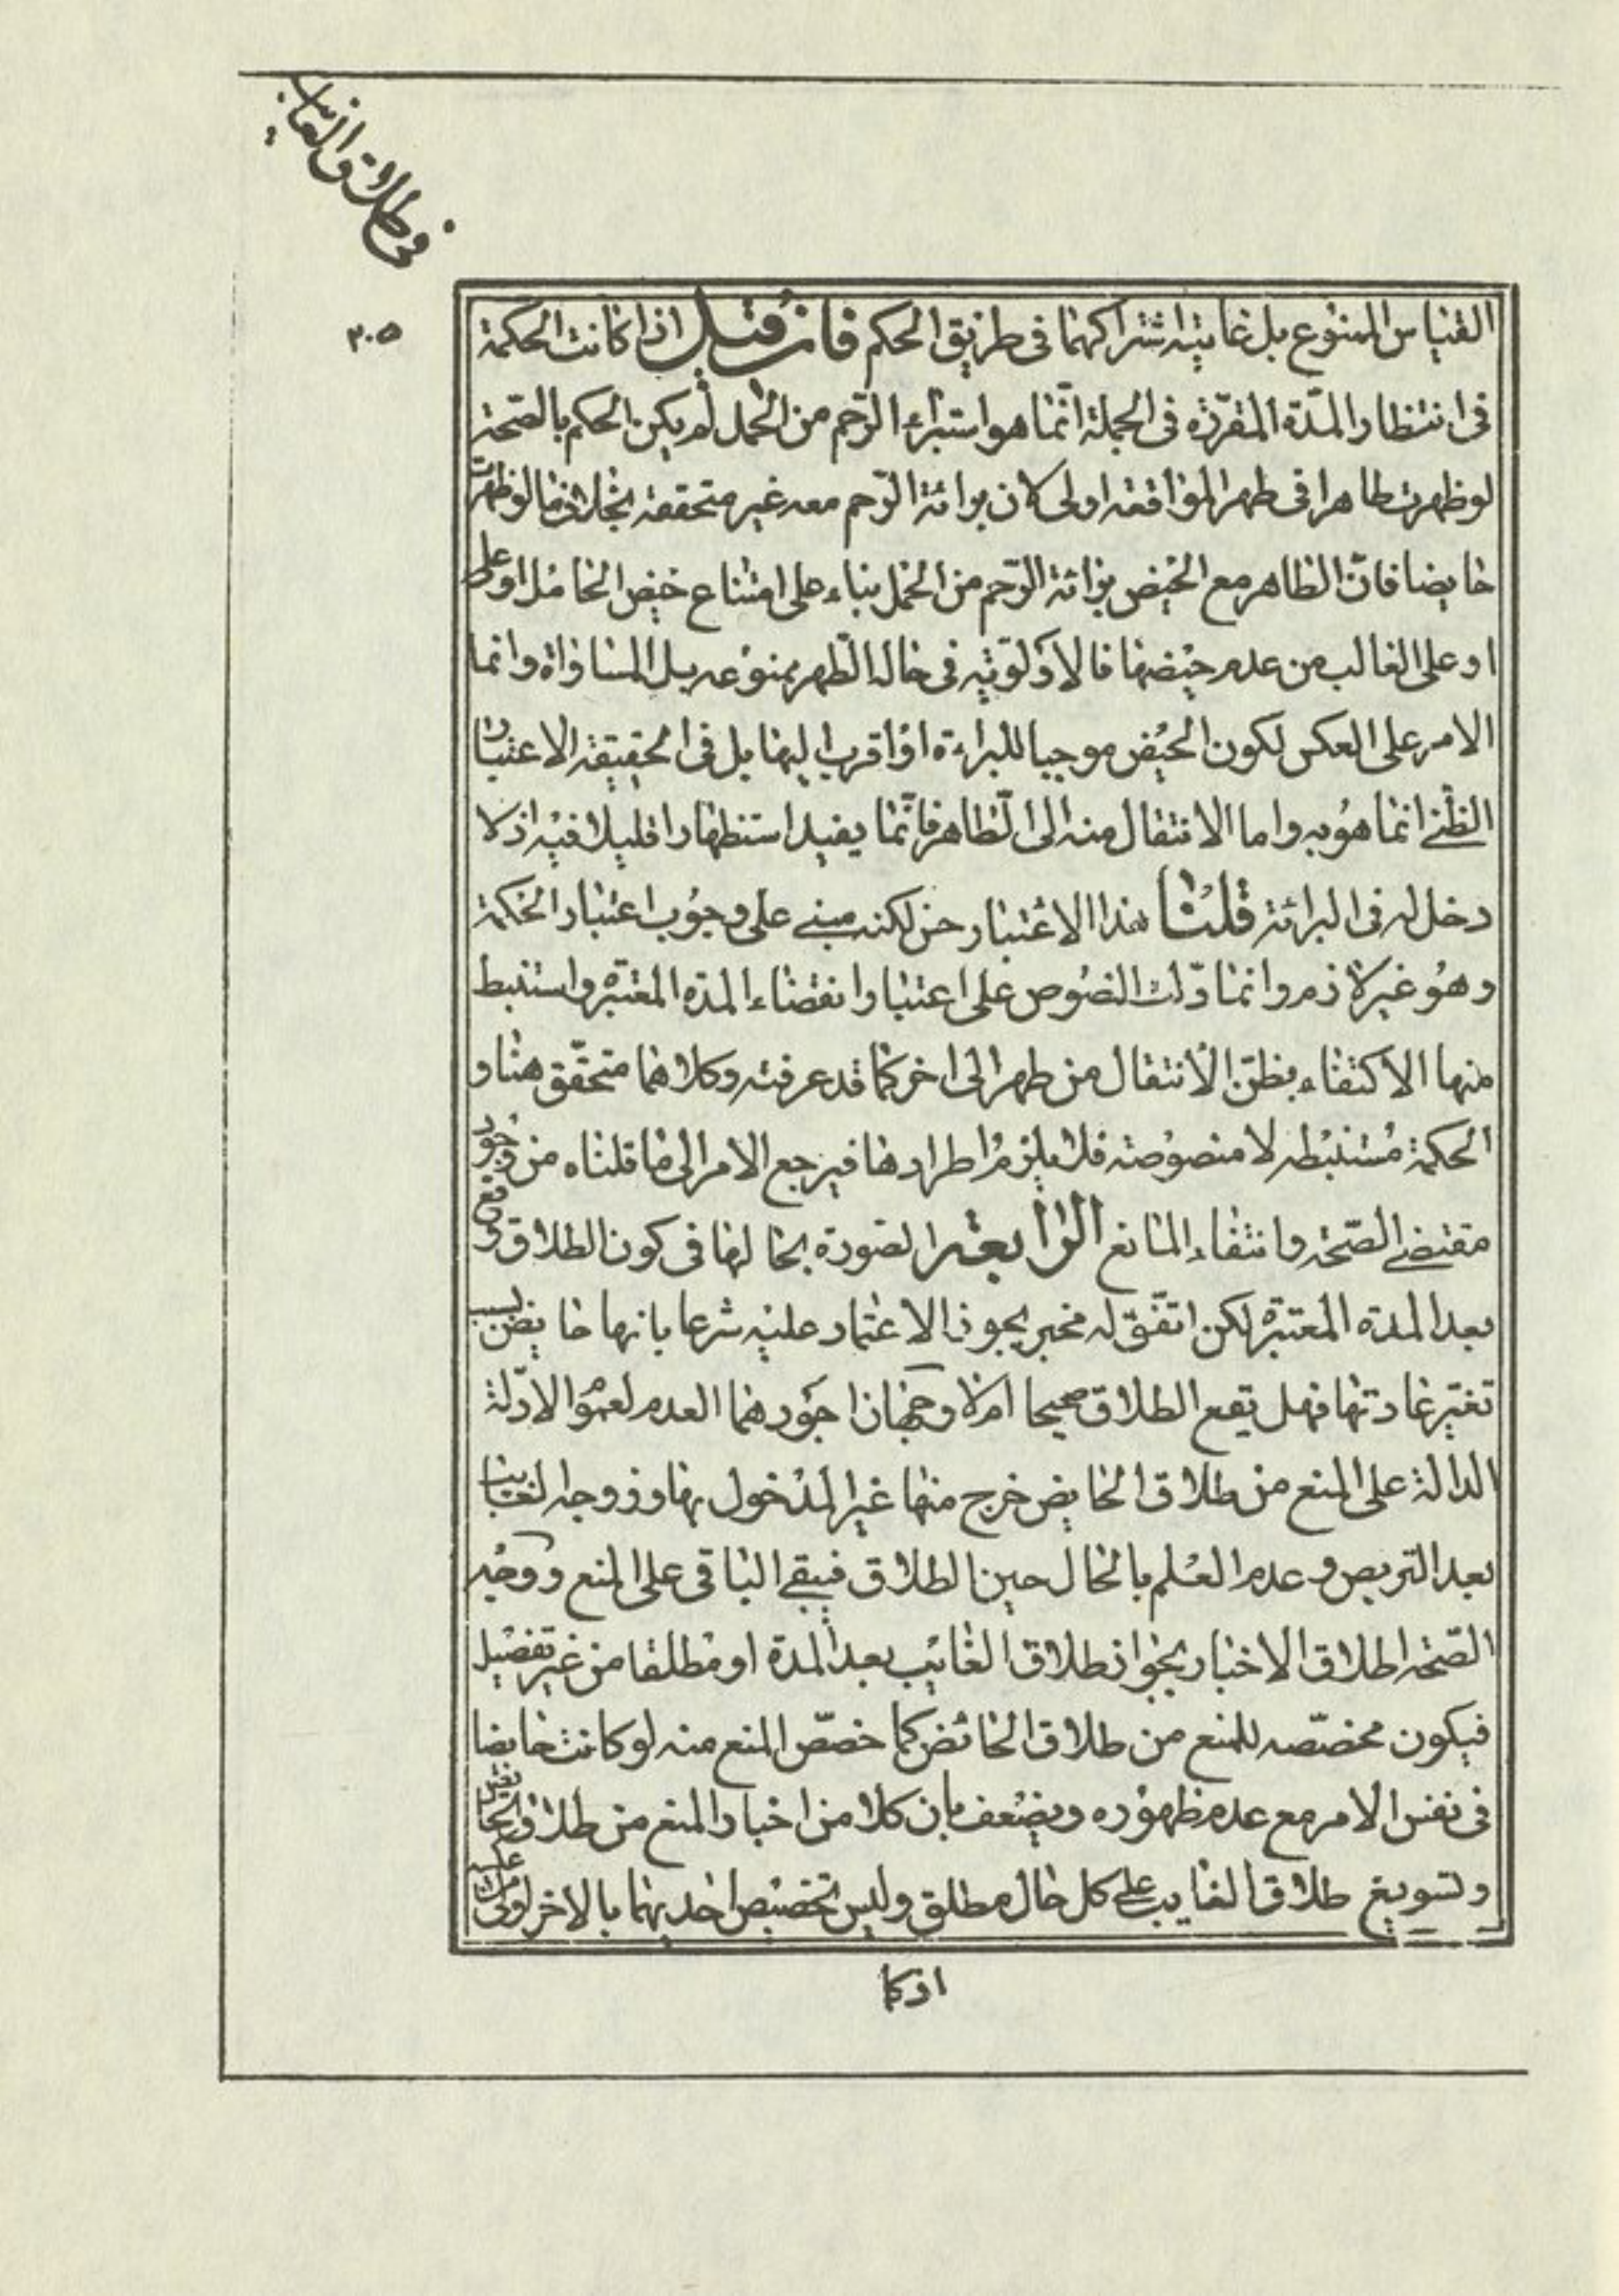 في طلاق الغايب
٣٠٥
القياس الممنوع بل غايته اشتراكهما في طريق الحكم فان قيل اذا كانت الحكمة
في انتظار المدّة المقرّرة في الجملة انّما هو استبراء الرّحم من الحمل لم يكن الحكم بالصّحة
لو ظهرت طاهرا في طهر المواقعه اولى لان برائة الرّحم معه غير متحققة بخلاف ما لو ظهرت
حايضا فانّ الظاهر مع الحيض برائة الرّحم من الحمل بناء على امتناع حيض الحامل او على
او على الغالب من عدم حيضها فالاولويّة في حالة الطّهر ممنوعه بل المساواة وانما
الامر على العكس لكون الحيض موجبا للبراءة او اقرب اليها بل في الحقيقة الاعتبار
الظّني انما هو به واما الانتقال منه الى الطّاهر فانّما يفيد استظهارا قليلا فيه اذ لا
دخل له في البرائة قلنا هذا الاعتبار حسن لكنه مبني على وجوب اعتبار الحكمة
وهو غير لازم وانما دلّت النصوص على اعتبار انقضاء المدة المعتبرة واستنبط
منها الاكتفاء بظنّ الانتقال من طهر الى اخر كما قد عرفته وكلاهما متحقّق هنا و
الحكمة مستنبطه لا منصوصة فلا يلزم اطرادها فيرجع الامر الى ما قلناه من وجود
مقتضى الصّحة وانتفاء المانع الرابعة الصورة بحالها في كون الطلاق وقع
بعد المدة المعتبرة لكن اتّفق له مخبر يجوز الاعتماد عليه شرعا بانها حايض بسبب
تغيّر عادتها فهل يقع الطلاق صحيحا ام لا وجهان اجودهما العدم لعموم الادلّة
الدالة على المنع من طلاق الحايض خرج منها غير المدخول بها وزوجة الغايب
بعد التربص وعدم العلم بالحال حين الطلاق فيبقى الباقي على المنع ووجه
الصّحة اطلاق الاخبار بجواز طلاق الغائب بعد المدة او مطلقا من غير تفصيل
فيكون مخصّصه للمنع من طلاق الحائض كما خصّص المنع منه لو كانت حايضا
في نفس الامر مع عدم ظهوره ويضعف بان كلا من اخبار المنع من طلاق الحايض
وتسويغ طلاق الغايب على كل حال مطلق وليس تخصيص احديهما بالاخر اولى من عكسه
اذ كا